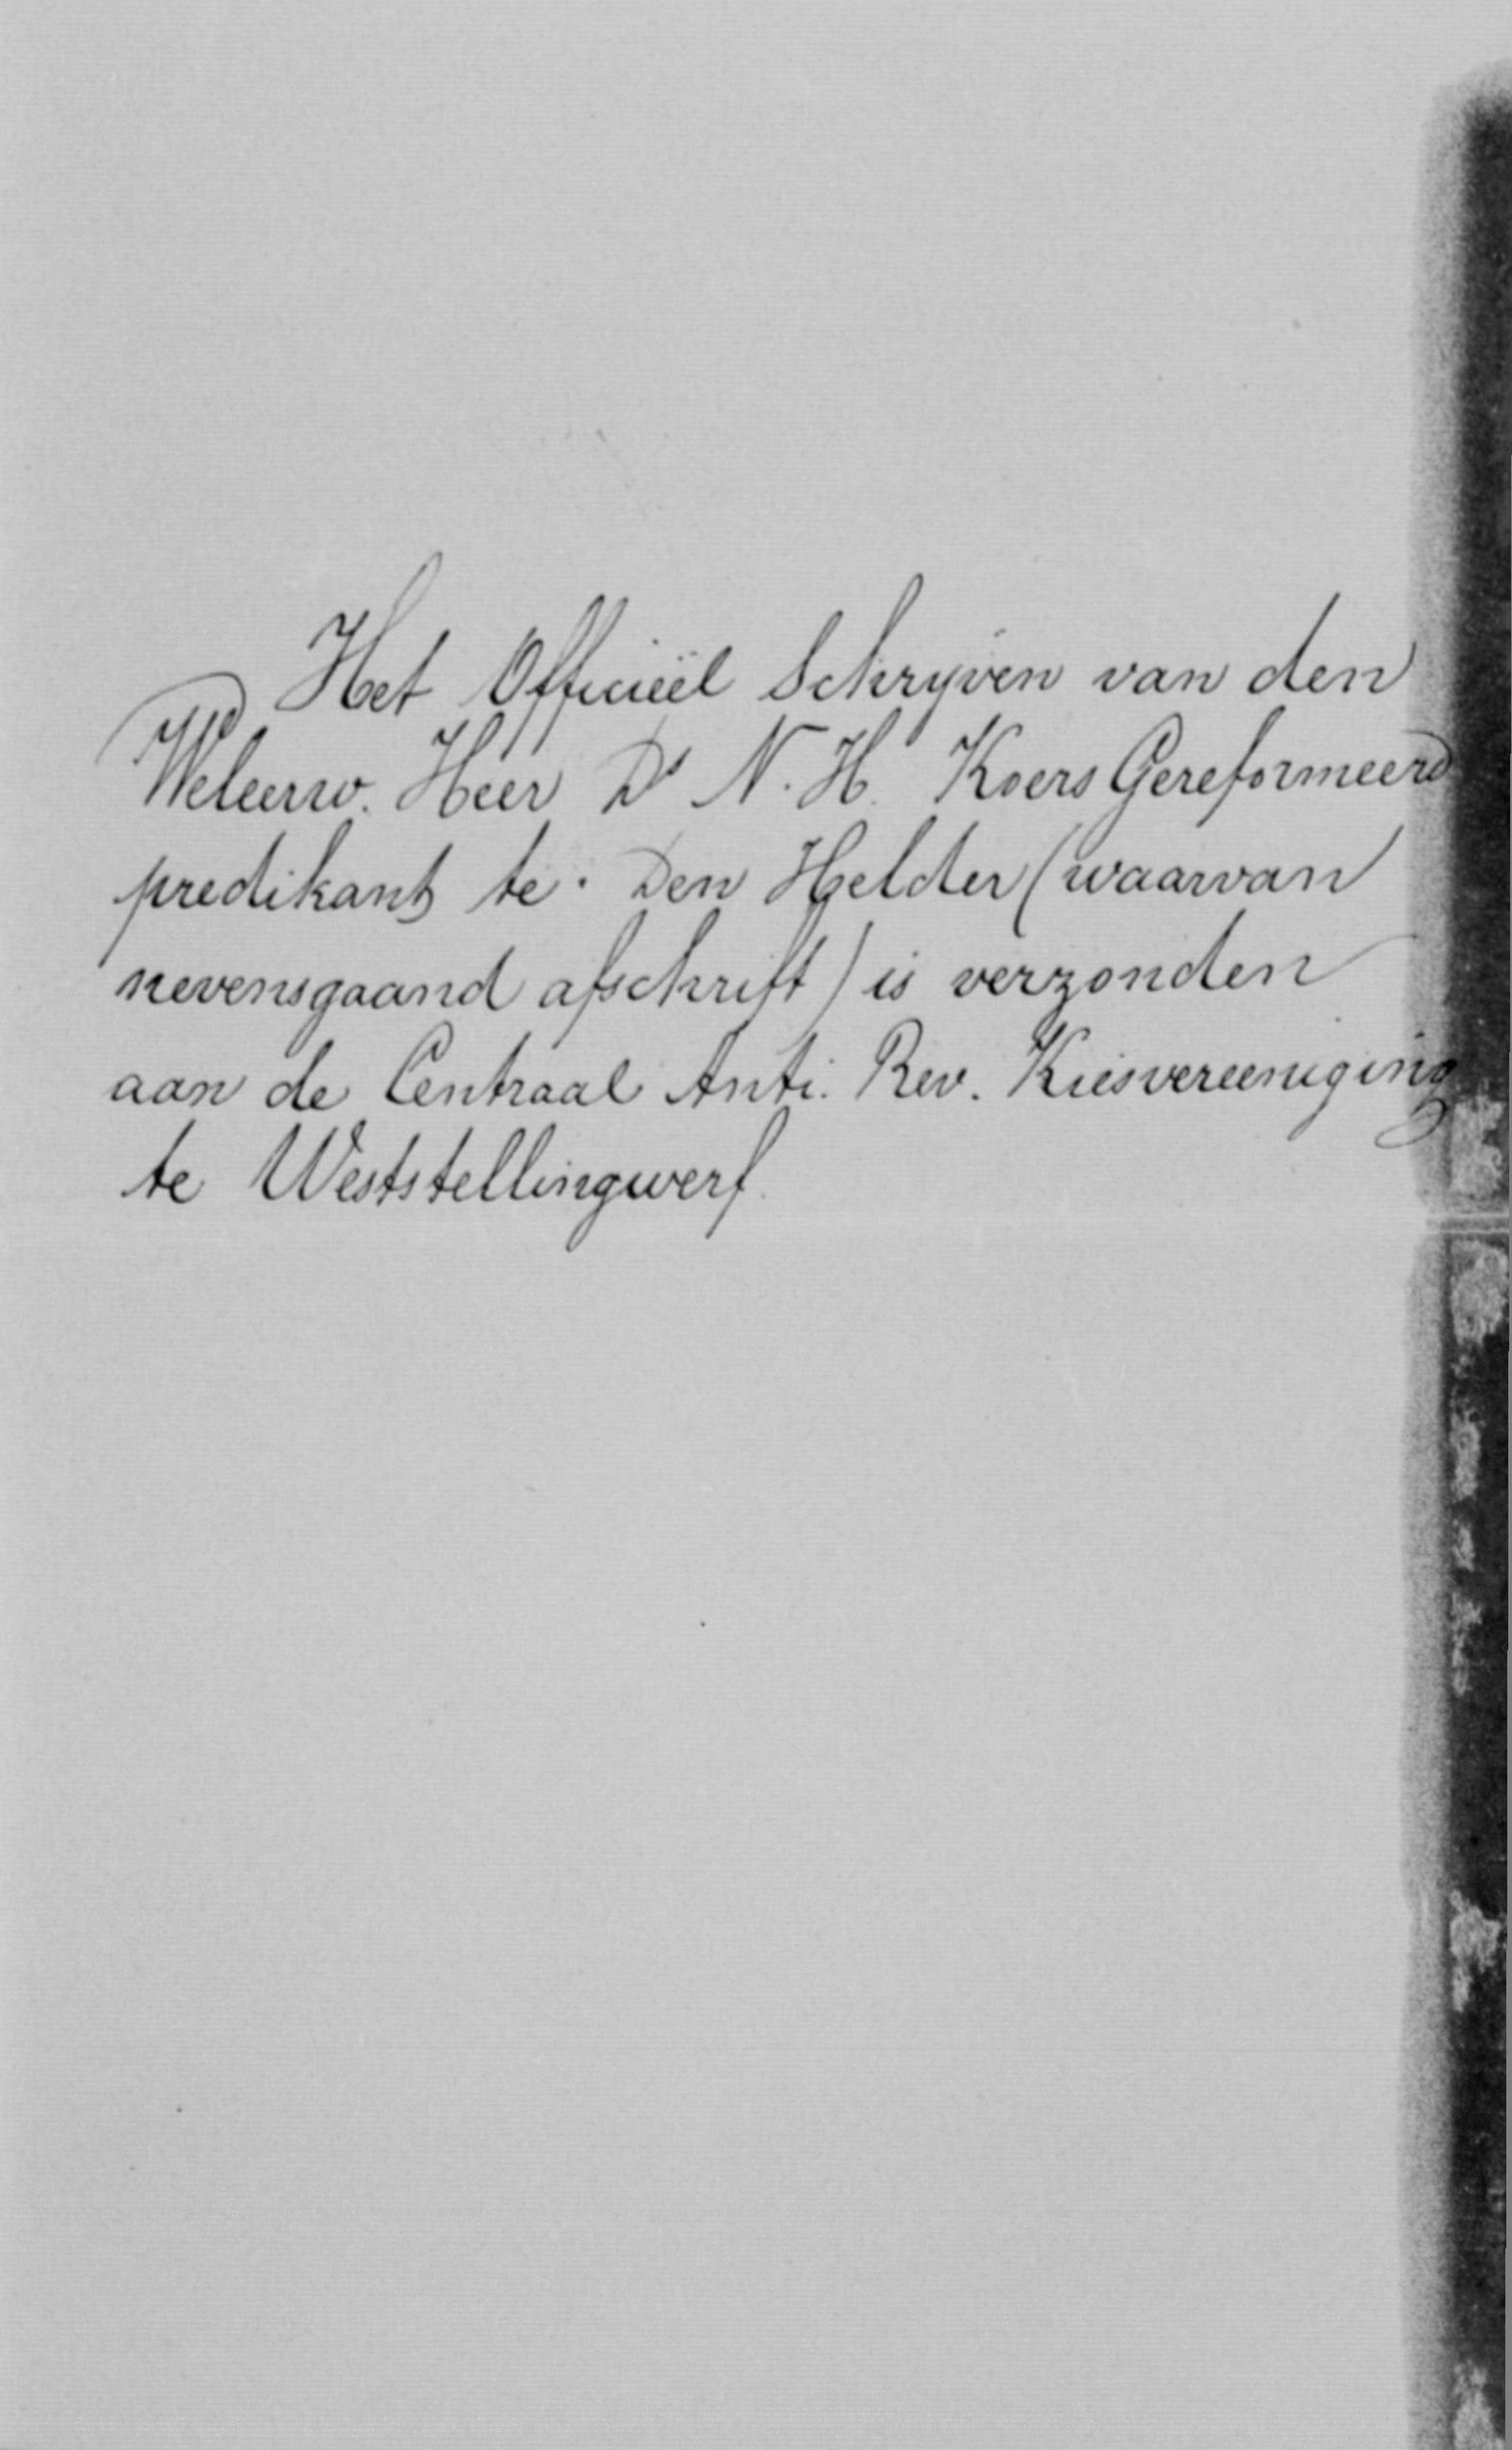 Het Officieël Schrijven van den
Weleerw. Heer Ds N. H. Koers Gereformeerd
predikant te. Den Helder (waarvan
nevensgaand afschrift) is verzonden
aan de Centraal Anti. Rev. Kiesvereeniging
te Weststellingwerf.